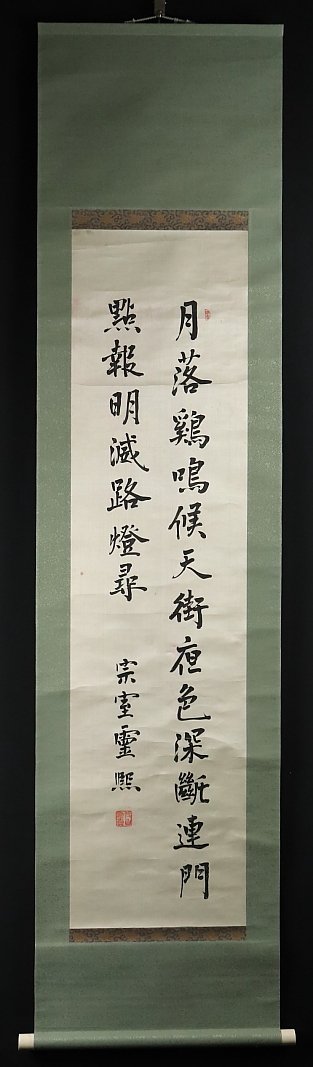 月落鷄鳴候天街夜色深斷連門
點報明滅路燈尋
宗室靈熙